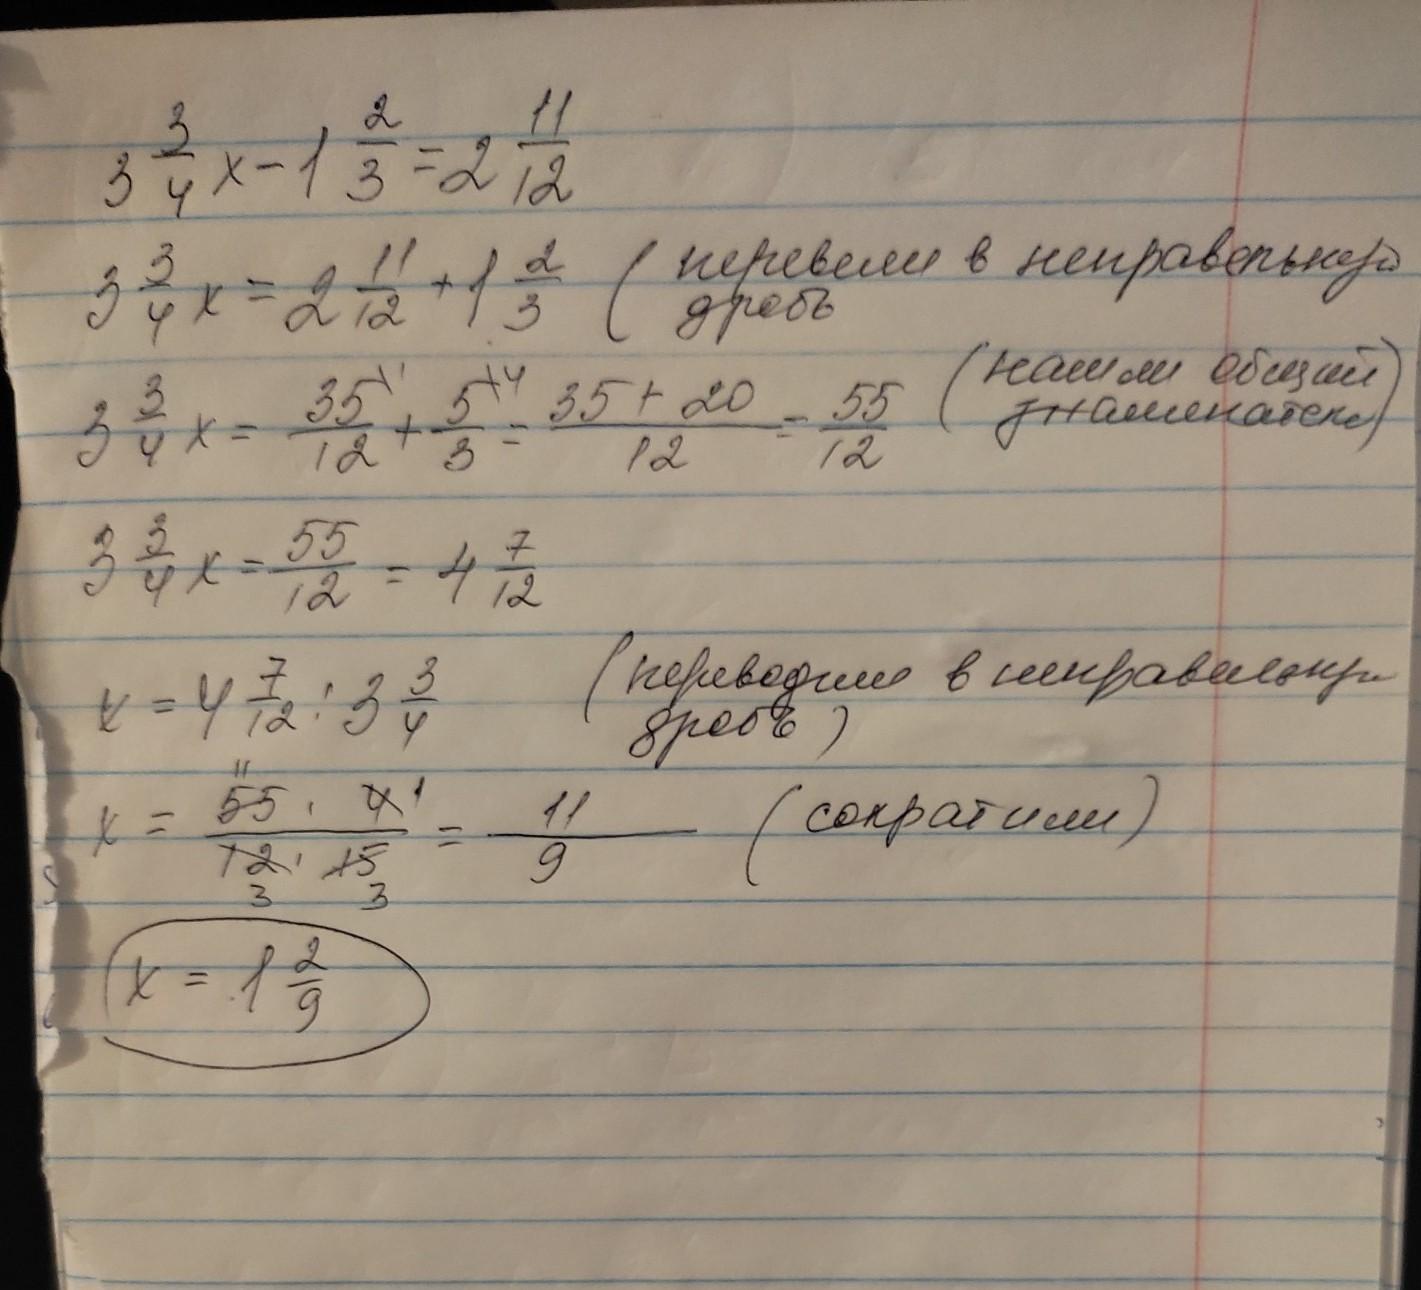 3 3/4 x - 1 2/3 = 2 11/12
3 3/4 x = 2 11/12 + 1 2/3 ( перевели в неправельную
дробь
3 3/4 x = 35\1/12 + 5\4/3 = 35 + 20/12 = 55/12 ( нашли общий
знаменатель)
3 3/4 x = 55/12 = 4 7/12
x = 4 7/12 : 3 3/4 ( переводим в неправильную
дробь )
x = 55 11 · 4 1 / 12 3 · 15 3 = 11/9 ( сократили )
x = 1 2/9